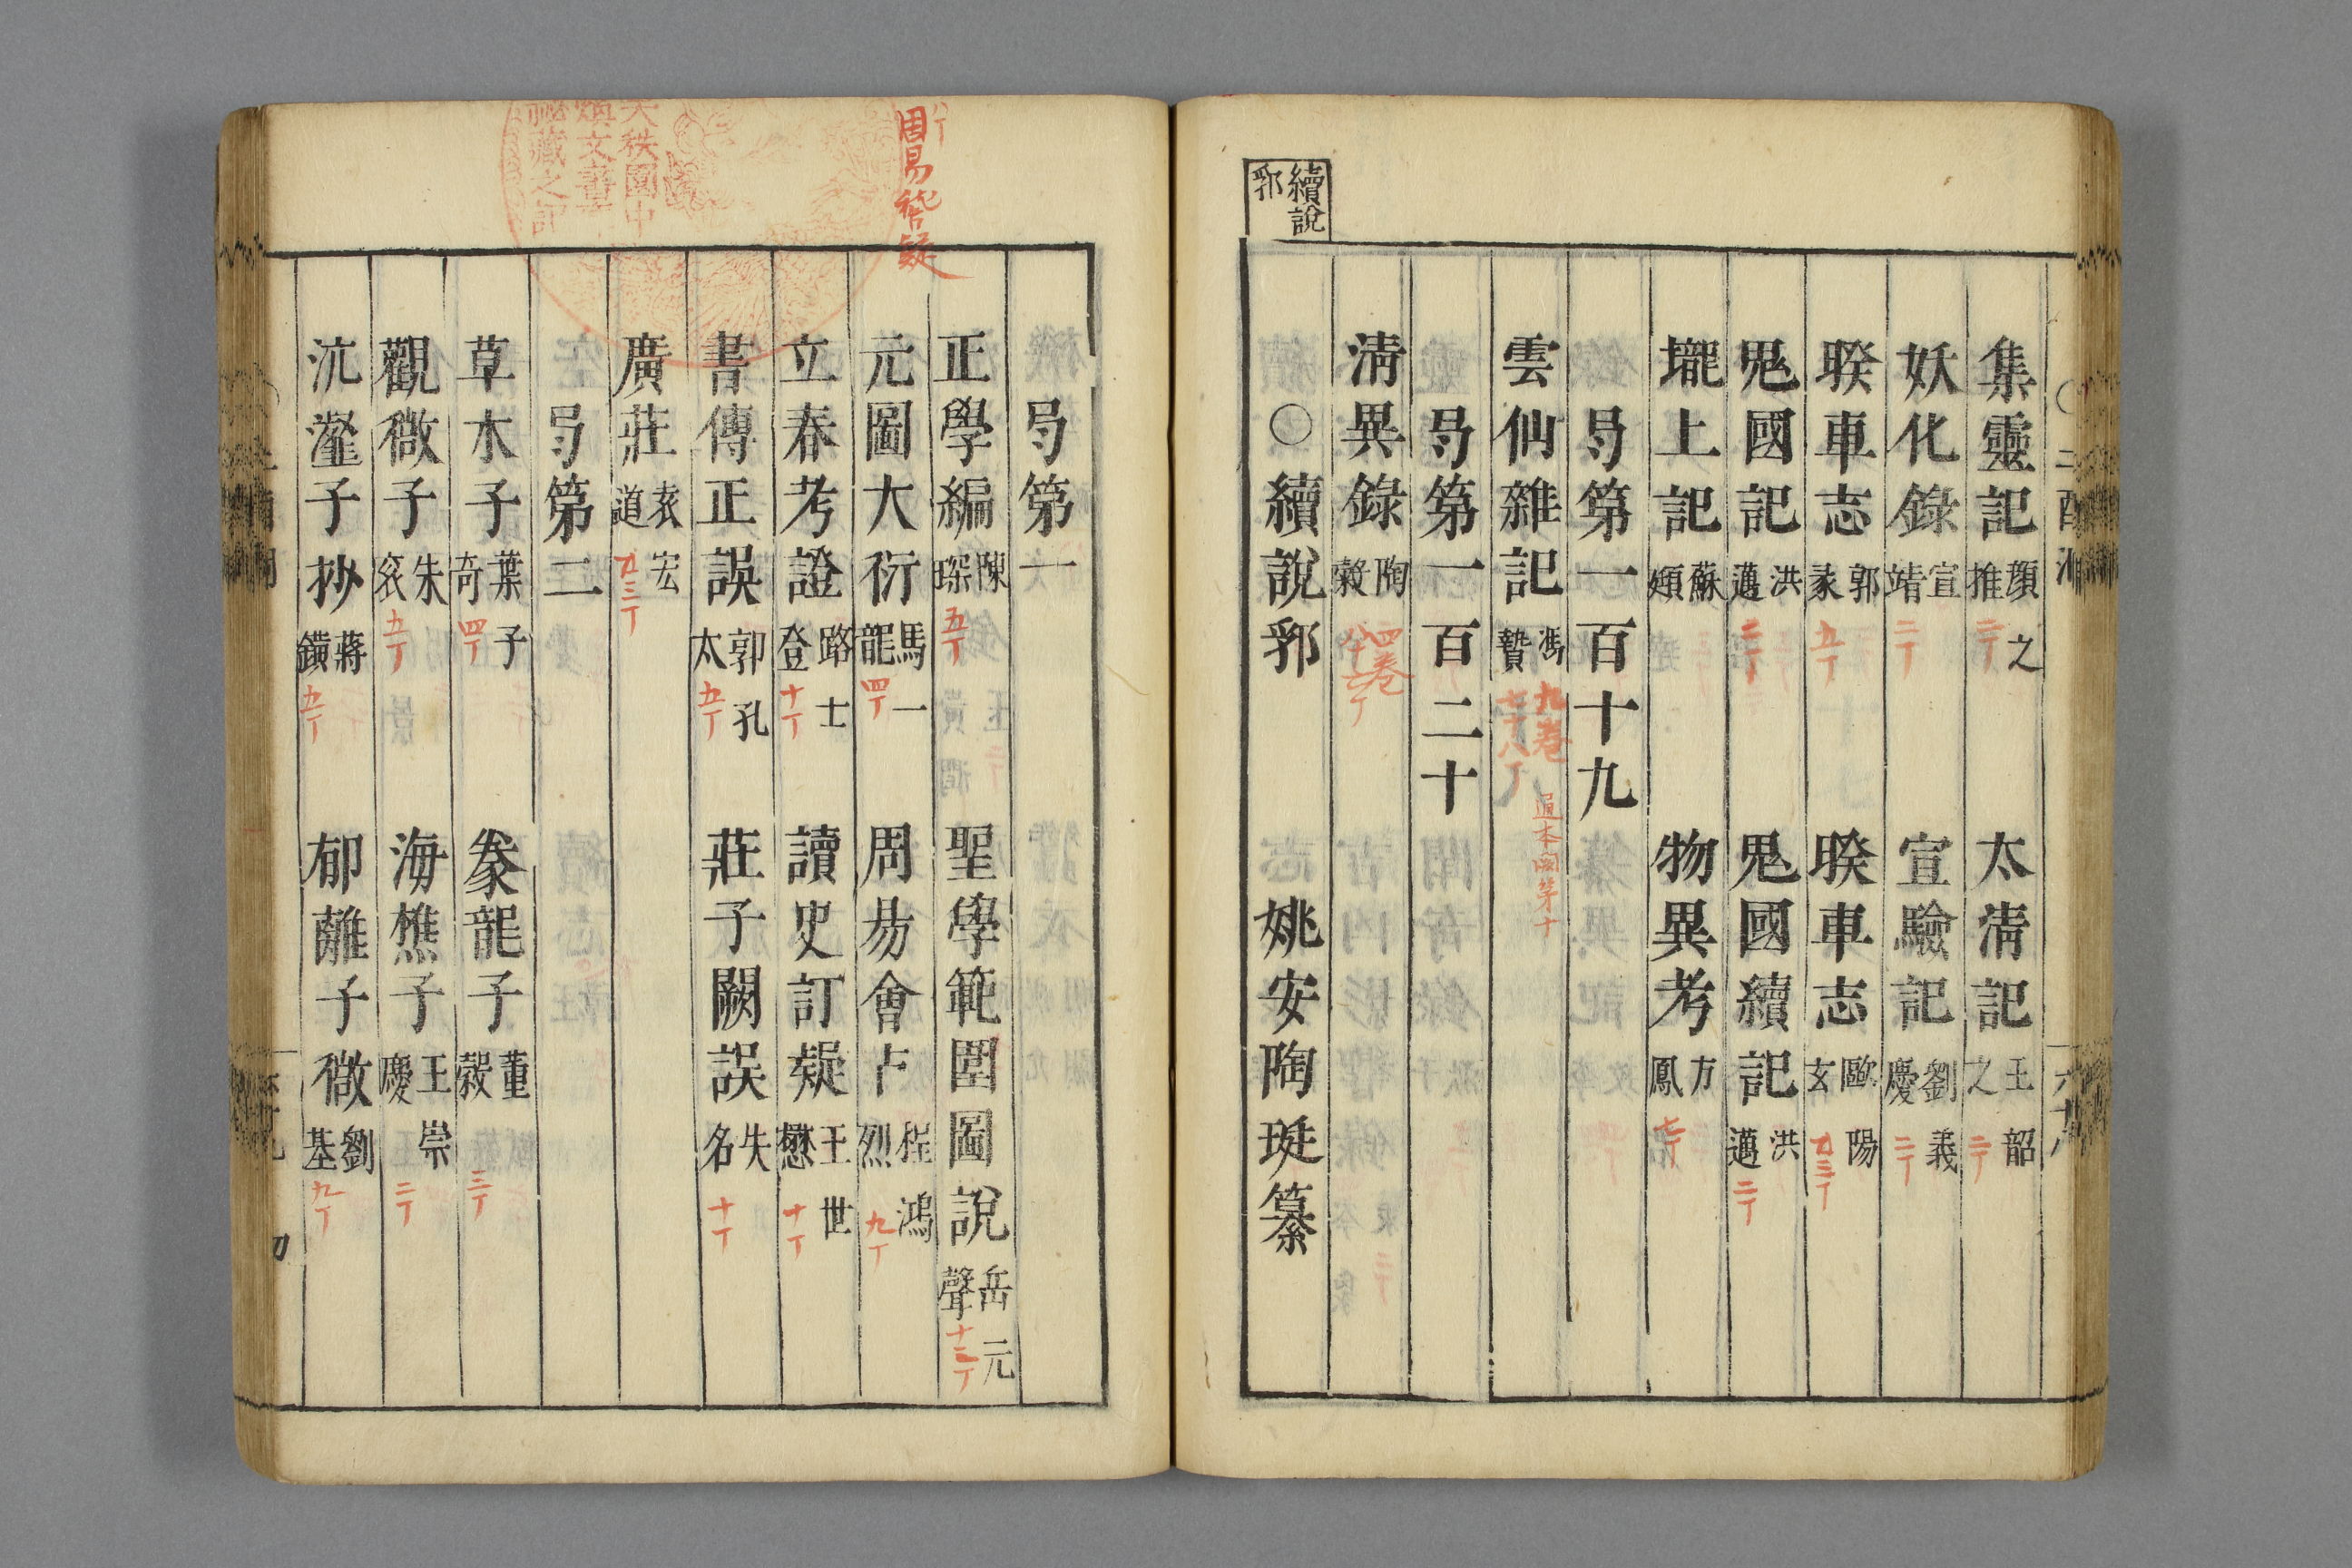 續說
郛
集靈記 顔之推 二丁 太清記 王韶之 二丁
妖化錄 宣靖 二丁 宣驗記 劉義慶 二丁
睽車志 郭彖 九丁 睽車志 歐陽玄 九三丁
鬼國記 洪邁 二丁 鬼國續記 洪邁 二丁
壠上記 蘇頲 物異考 方鳳 七丁
弓第一百十九
雲仙雜記 馮贄 九卷 七十八丁 通本闕第十
弓第一百二十
清異錄 陶穀 四卷
○續說郛 姚安陶珽纂
周易稽疑
弓第一
正學編 陳琛 五丁 聖學範圍圖說 岳元聲 十三丁
元圖大衍 馬一龍 四丁 周易會占 程鴻烈 九丁
立春考證 路士登 十丁 讀史訂疑 王世懋 十丁
書傳正誤 郭孔太 五丁 莊子闕誤 失名 十丁
廣莊 袁宏道 九三丁
弓第二
草木子 葉子奇 四丁 豢龍子 董穀 三丁
觀微子 朱袞 五丁 海樵子 王崇慶 二丁
沆瀣子 抄 蔣鐄 九丁 郁離子微 劉基 九丁